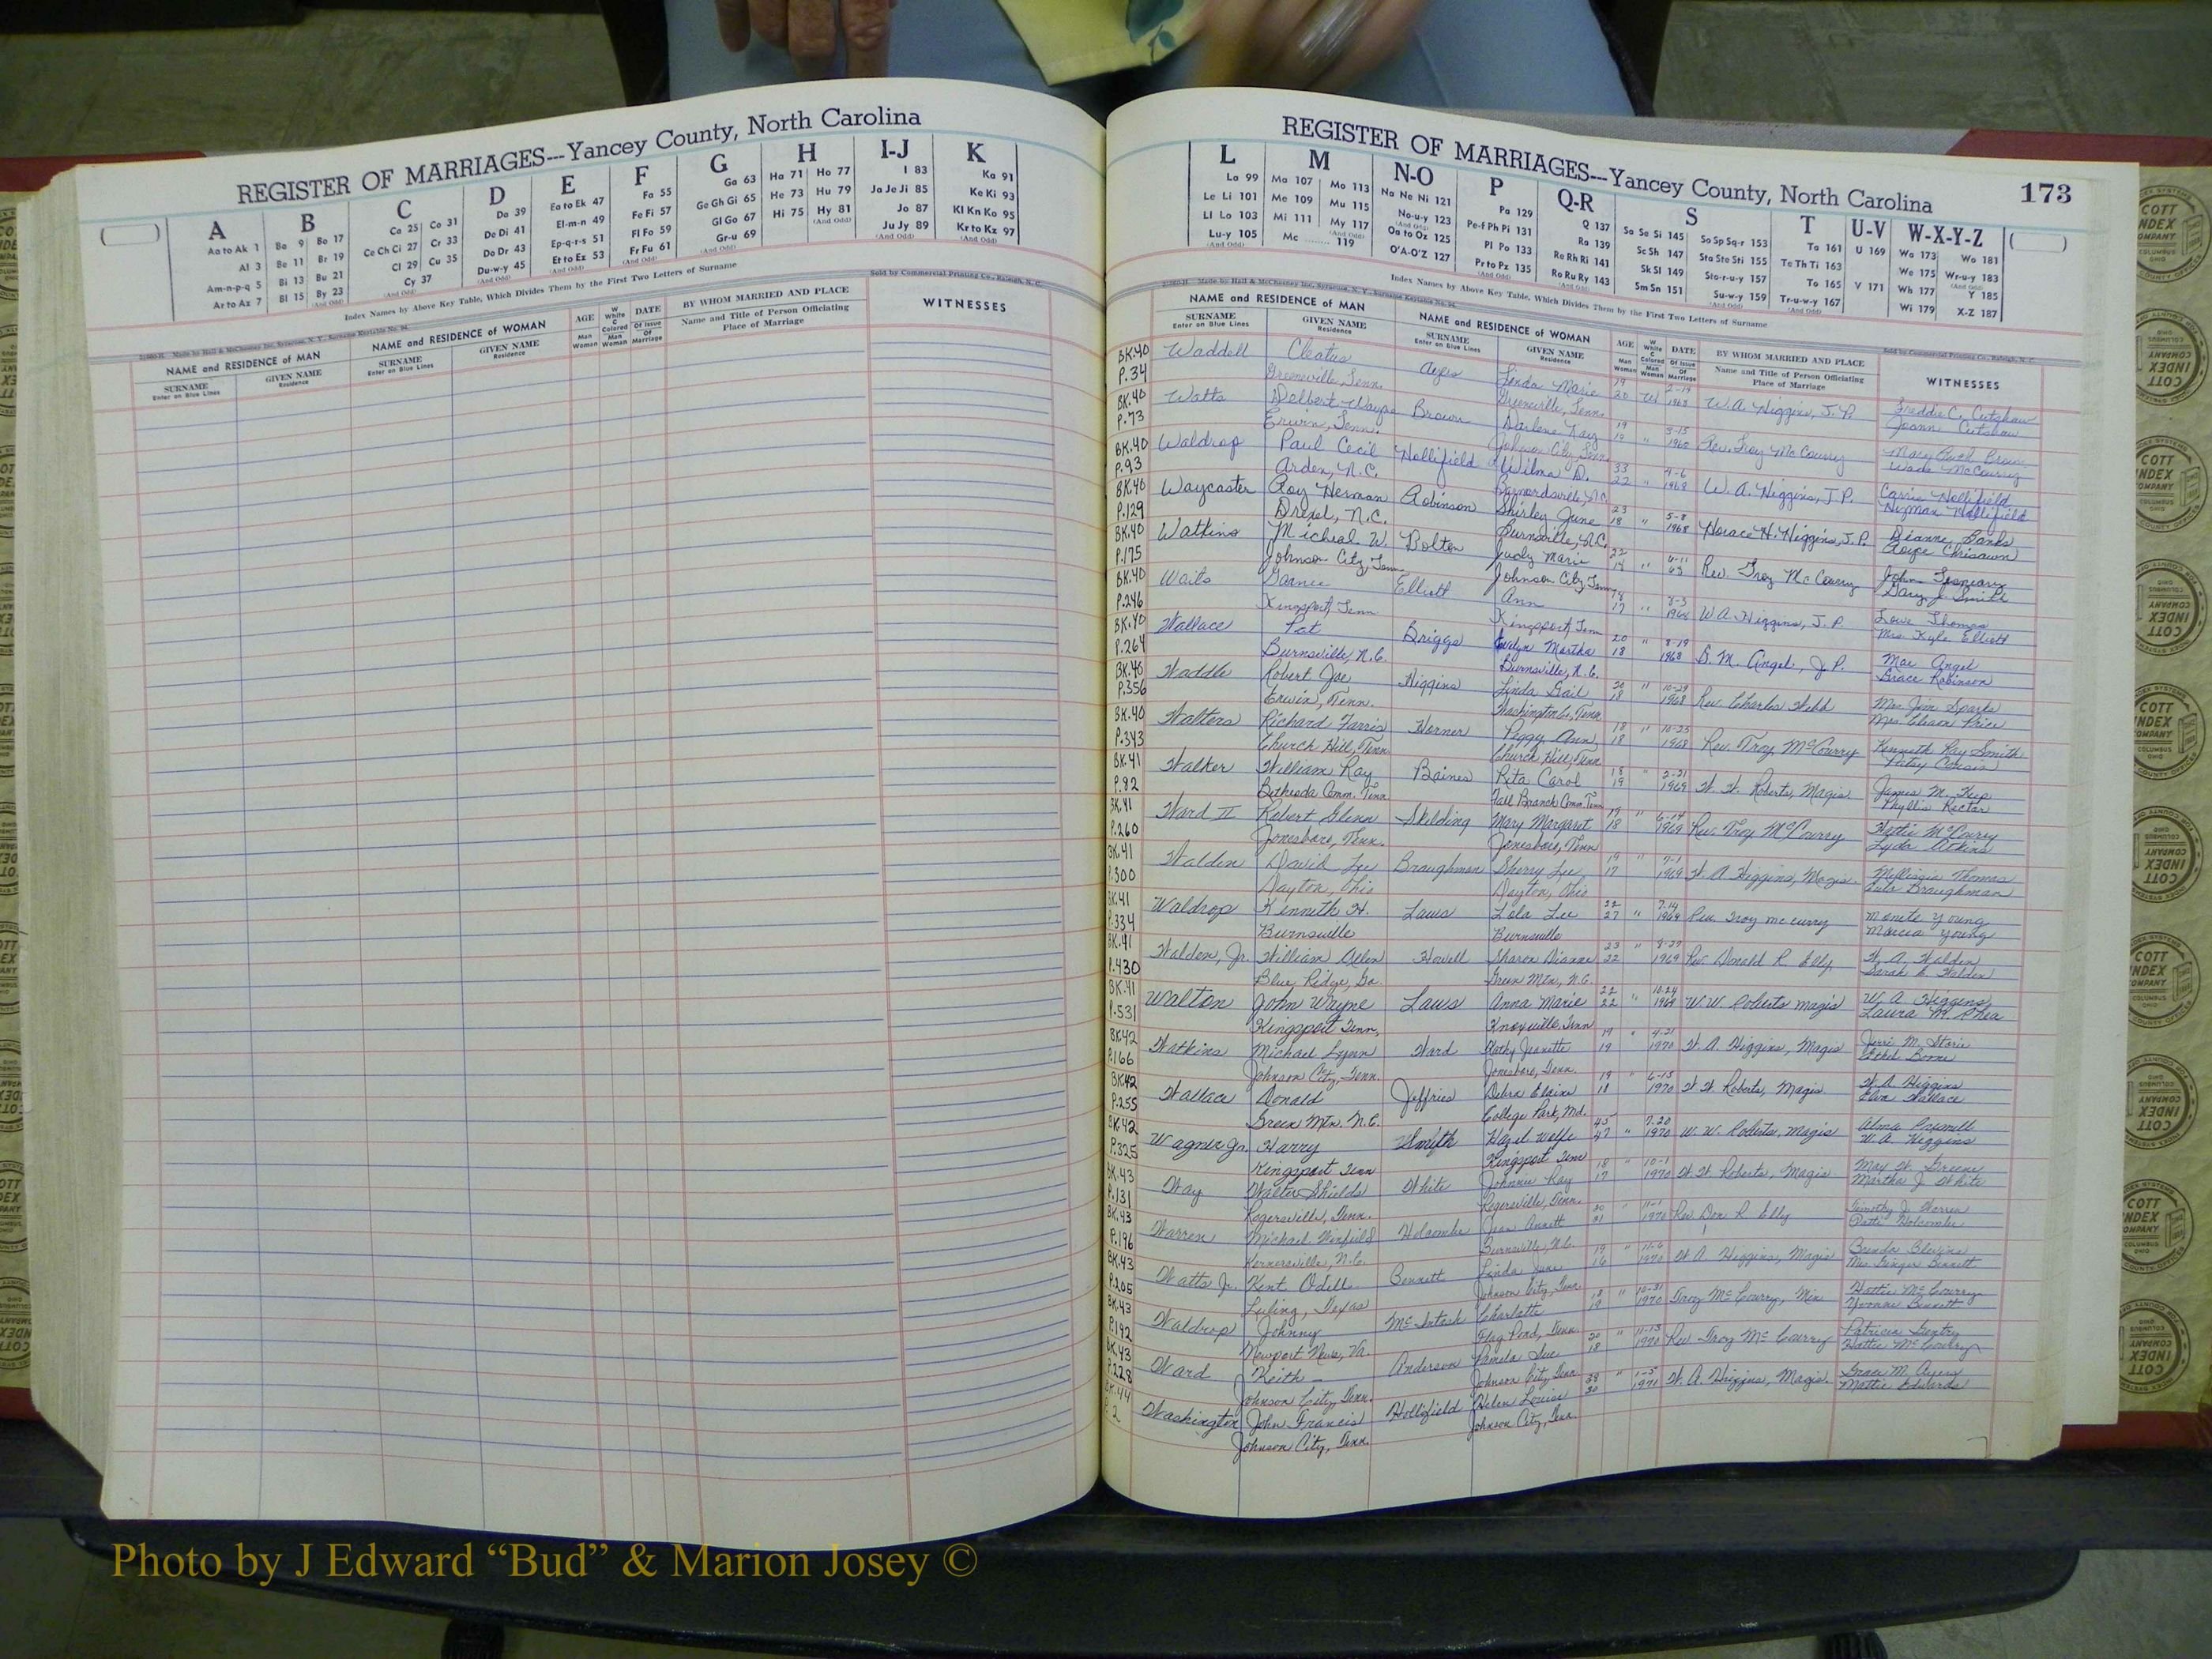 REGISTER OF MARRIAGES---Yancey County, North Carolina
A B C D E F G H I-J K
Aa to Ak 1 Al 3 Am-n-p-q 5 Ar to Az 7
Ba 9 Be 11 Bi 13 Bl 15 Bo 17 Br 19 Bu 21 By 23 (And Odd)
Ca 25 Ce Ch Ci 27 Cl 29 (And Odd) Co 31 Cr 33 Cu 35 Cy 37
Da 39 De Di 41 Do Dr 43 Du-w-y 45 (And Odd)
Ea to Ek 47 El-m-n 49 Ep-q-r-s 51 Et to Ez 53 (And Odd)
Fa 55 Fe Fi 57 Fl Fo 59 Fr Fu 61 (And Odd)
Ga 63 Ge Gh Gi 65 Gl Go 67 Gr-u 69 (And Odd)
Ha 71 He 73 Hi 75 Ho 77 Hu 79 Hy 81 (And Odd)
I 83 Ja Je Ji 85 Jo 87 Ju Jy 89 (And Odd)
Ka 91 Ke Ki 93 Kl Kn Ko 95 Kr to Kz 97 (And Odd)
Index Names by Above Key Table, Which Divides Them by the First Two Letters of Surname
Sold by Commercial Printing Co., Raleigh, N. C.
NAME and RESIDENCE of MAN NAME and RESIDENCE of WOMAN AGE W White C Colored DATE BY WHOM MARRIED AND PLACE WITNESSES
SURNAME Enter on Blue Lines GIVEN NAME Residence SURNAME Enter on Blue Lines GIVEN NAME Residence Man Woman Man Woman Of Issue Of Marriage Name and Title of Person Officiating Place of Marriage
REGISTER OF MARRIAGES---Yancey County, North Carolina 173
L M N-O P Q-R S T U-V W-X-Y-Z
La 99 Le Li 101 Ll Lo 103 Lu-y 105 (And Odd)
Ma 107 Me 109 Mi 111 Mc 119 Mo 113 Mu 115 My 117 (And Odd)
Na Ne Ni 121 No-u-y 123 (And Odd) Oa to Oz 125 O'A-O'Z 127
Pa 129 Pe-f Ph Pi 131 Pl Po 133 Pr to Pz 135 (And Odd)
Q 137 Ra 139 Re Rh Ri 141 Ro Ru Ry 143 (And Odd)
Sa Se Si 145 Sc Sh 147 Sk Sl 149 Sm Sn 151 So Sp Sq-r 153 Sta Ste Sti 155 Sto-r-u-y 157 Su-w-y 159 (And Odd)
Ta 161 Te Th Ti 163 To 165 Tr-u-w-y 167 (And Odd)
U 169 V 171
Wa 173 We 175 Wh 177 Wi 179 Wo 181 Wr-u-y 183 (And Odd) Y 185 X-Z 187
Index Names by Above Key Table, Which Divides Them by the First Two Letters of Surname
Sold by Commercial Printing Co., Raleigh, N. C.
NAME and RESIDENCE of MAN NAME and RESIDENCE of WOMAN AGE W White C Colored DATE BY WHOM MARRIED AND PLACE WITNESSES
SURNAME Enter on Blue Lines GIVEN NAME Residence SURNAME Enter on Blue Lines GIVEN NAME Residence Man Woman Man Woman Of Issue Of Marriage Name and Title of Person Officiating Place of Marriage
BK.40 Waddell Cleatus Linda Marie 19 20 W 1968 W. A. Higgins, J. P. Freddie C. Cutshaw
P.34 Greeneville, Tenn. Greeneville, Tenn. Joann Cutshaw
BK.40 Watts Delbert Wayne Brown Darlene Kay 19 19 " 3-15 1968 Rev. Troy McCourry
P.73 Erwin, Tenn. Johnson City, Tenn. Wade McCourry
BK.40 Waldrop Paul Cecil Hollifield Wilma D. 33 22 " 4-6 1968 W. A. Higgins, J. P. Carrie Hollifield
P.93 Arden, N.C. Barnardsville, N.C. Hollifield
BK.40 Waycaster Roy Herman Robinson Shirley June 23 18 " 5-8 1968 Horace H. Higgins, J.P. Dianne Banks
P.129 Drexel, N.C. Burnsville, N.C. Chrisawn
BK.40 Watkins Micheal W. Bolton Judy Marie 22 " Rev. Troy McCourry John
P.175 Johnson City, Tenn. Johnson City, Tenn. Gary J. Smith
BK.40 Waits Elliott Ann 17 " 1968 W A Higgins, J. P. Lowe Thomas
P.246 Kingsport, Tenn Kingsport, Tenn Mrs. Kyle Elliott
BK.40 Wallace Pat Briggs Martha 20 18 " 8-19 1968 S. M. Angel, J P. Mae Angel
P.264 Burnsville, N.C. Burnsville, N.C. Grace Robinson
BK.40 Waddle Robert Joe Higgins Linda Gail 20 18 " 10-29 1968 Rev. Charles Webb Mrs Jim Sparks
P.356 Erwin, Tenn. Washington Co., Tenn. Price
BK.40 Walters Richard Farris Horner Peggy Ann 18 18 " 10-25 1968 Rev. Troy McCourry Kenneth Ray Smith
P.343 Church Hill, Tenn Church Hill, Tenn Patsy
BK.41 Walker William Ray Baines Rita Carol 18 19 " 2-21 1969 W. W. Roberts, Magis James M.
P.82 Bethesda Comm. Tenn Fall Branch Comm. Tenn Phyllis Rector
BK.41 Ward II Robert Glenn Skelding Mary Margaret 19 18 " 6-14 1969 Rev. Troy McCourry Hattie McCourry
P.260 Jonesboro, Tenn. Jonesboro, Tenn Lyda Atkins
BK.41 Walden David Lee Braughman Sherry Lee 19 17 " 7-1 1969 W. A. Higgins, Magis. Thomas
P.300 Dayton, Ohio Dayton, Ohio Lula Braughman
BK.41 Waldrop Kenneth H. Laws Lola Lee 22 27 " 7-14 1969 Rev. Troy mccurry Monete Young
P.334 Burnsville Burnsville Marcia Young
BK.41 Walden, Jr. William Allen Howell Sharon Dianne 23 22 " 8-29 1969 Rev. Donald R. Elly W. A. Walden
P.430 Blue Ridge, Ga. Green Mtn, N.C. Sarah E. Walden
BK.41 Walton John Wayne Laws Anna Marie 22 22 " 10-24 1969 W.W. Roberts magis W. A. Higgins
P.531 Kingsport Tenn, Knoxville, Tenn Laura M. Shea
BK.42 Watkins Michael Lynn Ward Kathy Jeanette 19 19 " 4-21 1970 W. A. Higgins, Magis Jerri M. Storie
P.166 Johnson City, Tenn. Jonesboro, Tenn. Ethel Boone
BK.42 Wallace Donald Jeffries Debra Elaine 19 18 " 6-13 1970 W W Roberts, Magis. W. A. Higgins
P.255 Green Mtn. N.C. College Park, Md. Wallace
BK.42 Wagner Jr. Harry Smith Hazel Wolfe 45 47 " 7-20 1970 W. W. Roberts, Magis Alma Presnell
P.325 Kingsport Tenn Kingsport Tenn W. A. Higgins
BK.43 Way Walter Shields White Johnnie Kay 18 17 " 10-1 1970 W W Roberts, Magis May W. Greene
P.131 Rogersville, Tenn. Rogersville, Tenn. Martha J. White
BK.43 Warren Michael Winfield Holcombe Jean Annett 20 21 " 11-1 1970 Rev Don R Elly Timothy J. Warren
P.196 Kernersville, N.C. Burnsville, N.C. Patti Holcombe
BK.43 Watts Jr. Kent Odell Bennett Linda 19 16 " 11-6 1970 W. A. Higgins, Magis Brenda Blevins
P.205 Luling, Texas Johnson City, Tenn. Mrs Ginger Bennett
BK.43 Waldrop Johnny McIntosh Charlotte 18 19 " 10-31 1970 Troy McCourry, Min Hattie McCourry
P.192 Newport News, Va. Flag Pond, Tenn. Yvonne Bennett
BK.43 Ward Keith Anderson Pamela Sue 20 18 " 11-13 1970 Rev Troy McCourry Patricia Gentry
P.228 Johnson City, Tenn. Johnson City, Tenn Hattie McCourry
BK.44 Washington John Francis Hollifield Helen Louise " 1971 W. A. Higgins, Magis. Grace M. Ayers
P. 2 Johnson City, Tenn. Johnson City, Tenn. Mattie Edwards
COTT INDEX COMPANY COLUMBUS OHIO
Photo by J Edward “Bud” & Marion Josey ©